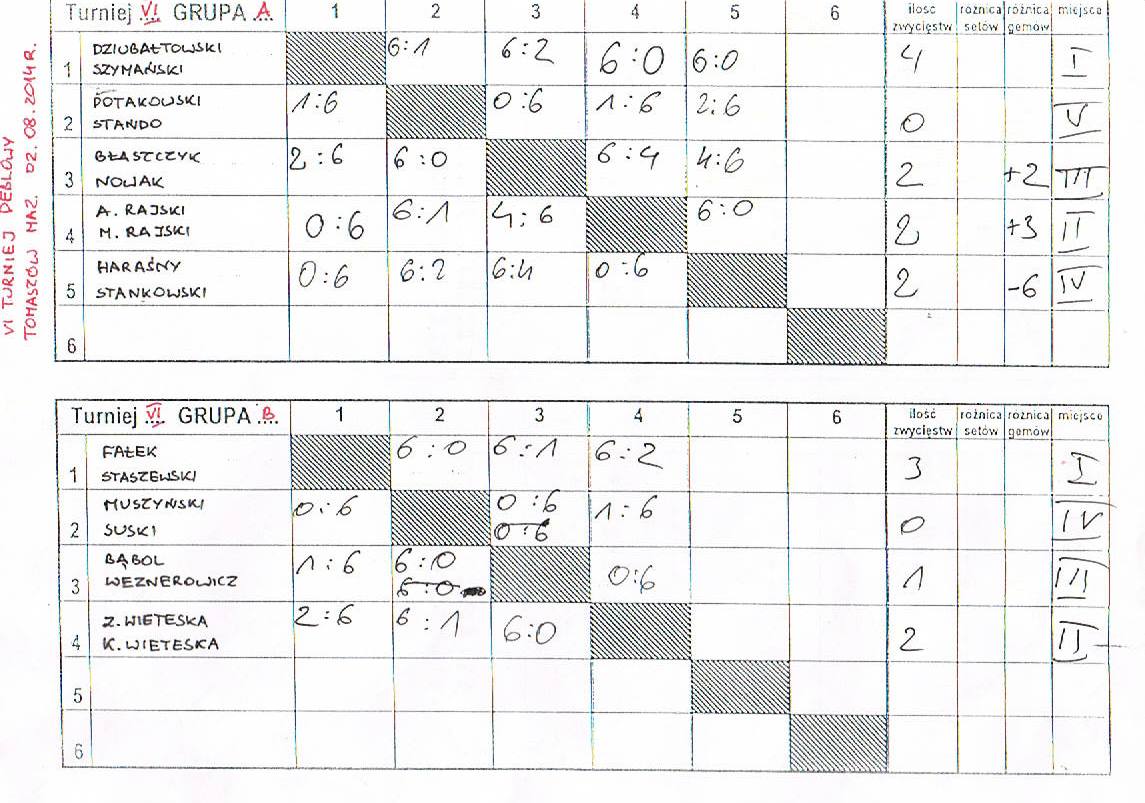 VI TURNIEJ DEBLOWY
TOMASZÓW MAZ. 02.08.2014 R.
Turniej VI GRUPA A 1 2 3 4 5 6 ilość zwycięstw różnica setów różnica gemów miejsce
1 DZIUBAŁTOWSKI SZYMAŃSKI 6:1 6:2 6:0 6:0 4 I
2 POTAKOWSKI STANDO 1:6 0:6 1:6 2:6 0 V
3 BŁASZCZYK NOWAK 2:6 6:0 6:4 4:6 2 +2 III
4 A. RAJSKI M. RAJSKI 0:6 6:1 4:6 6:0 2 +3 II
5 HARAŚNY STANKOWSKI 0:6 6:2 6:4 0:6 2 -6 IV
6
Turniej VI GRUPA B 1 2 3 4 5 6 ilość zwycięstw różnica setów różnica gemów miejsce
1 FAŁEK STASZEWSKI 6:0 6:1 6:2 3 I
2 MUSZYŃSKI SUSKI 0:6 0:6 0:6 1:6 0 IV
3 BĄBOL WEZNEROWICZ 1:6 6:0 6:0 0:6 1 III
4 Z. WIETESKA K. WIETESKA 2:6 6:1 6:0 2 II
5
6